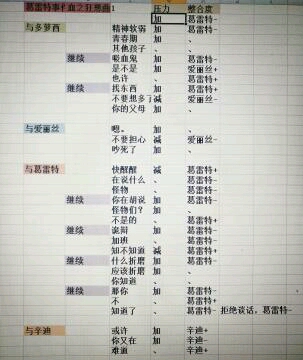 葛雷特事件血之狂想曲1 压力 整合度
加 葛雷特-
与多萝西 精神软弱 加 葛雷特-
青春期 加 、
其他孩子 、 、
继续 吸血鬼 加 葛雷特-
是不是 加 爱丽丝+
也许 、 葛雷特+
继续 找东西 加 葛雷特+
不要想多了 减 爱丽丝+
你的父母 加 、
与爱丽丝 嗯。 加 、
不要担心 减 爱丽丝-
吵死了 加 、
与葛雷特 快醒醒 减 葛雷特+
在说什么 、 葛雷特-
怪物 、 葛雷特-
继续 你在胡说 加 葛雷特-
怪物们? 加 、
不是的 、 葛雷特+
继续 诡辩 加 葛雷特-
加班 、 葛雷特-
知不知道 减 葛雷特+
继续 什么折磨 加 葛雷特-
应该折磨 加 葛雷特-
你知道 、 、
继续 那你 加 葛雷特-
不 、 葛雷特+
知道了 、 葛雷特- 拒绝谈话,葛雷特-
与辛迪 或许 加 辛迪+
你又在 加 辛迪-
难道 、 辛迪+